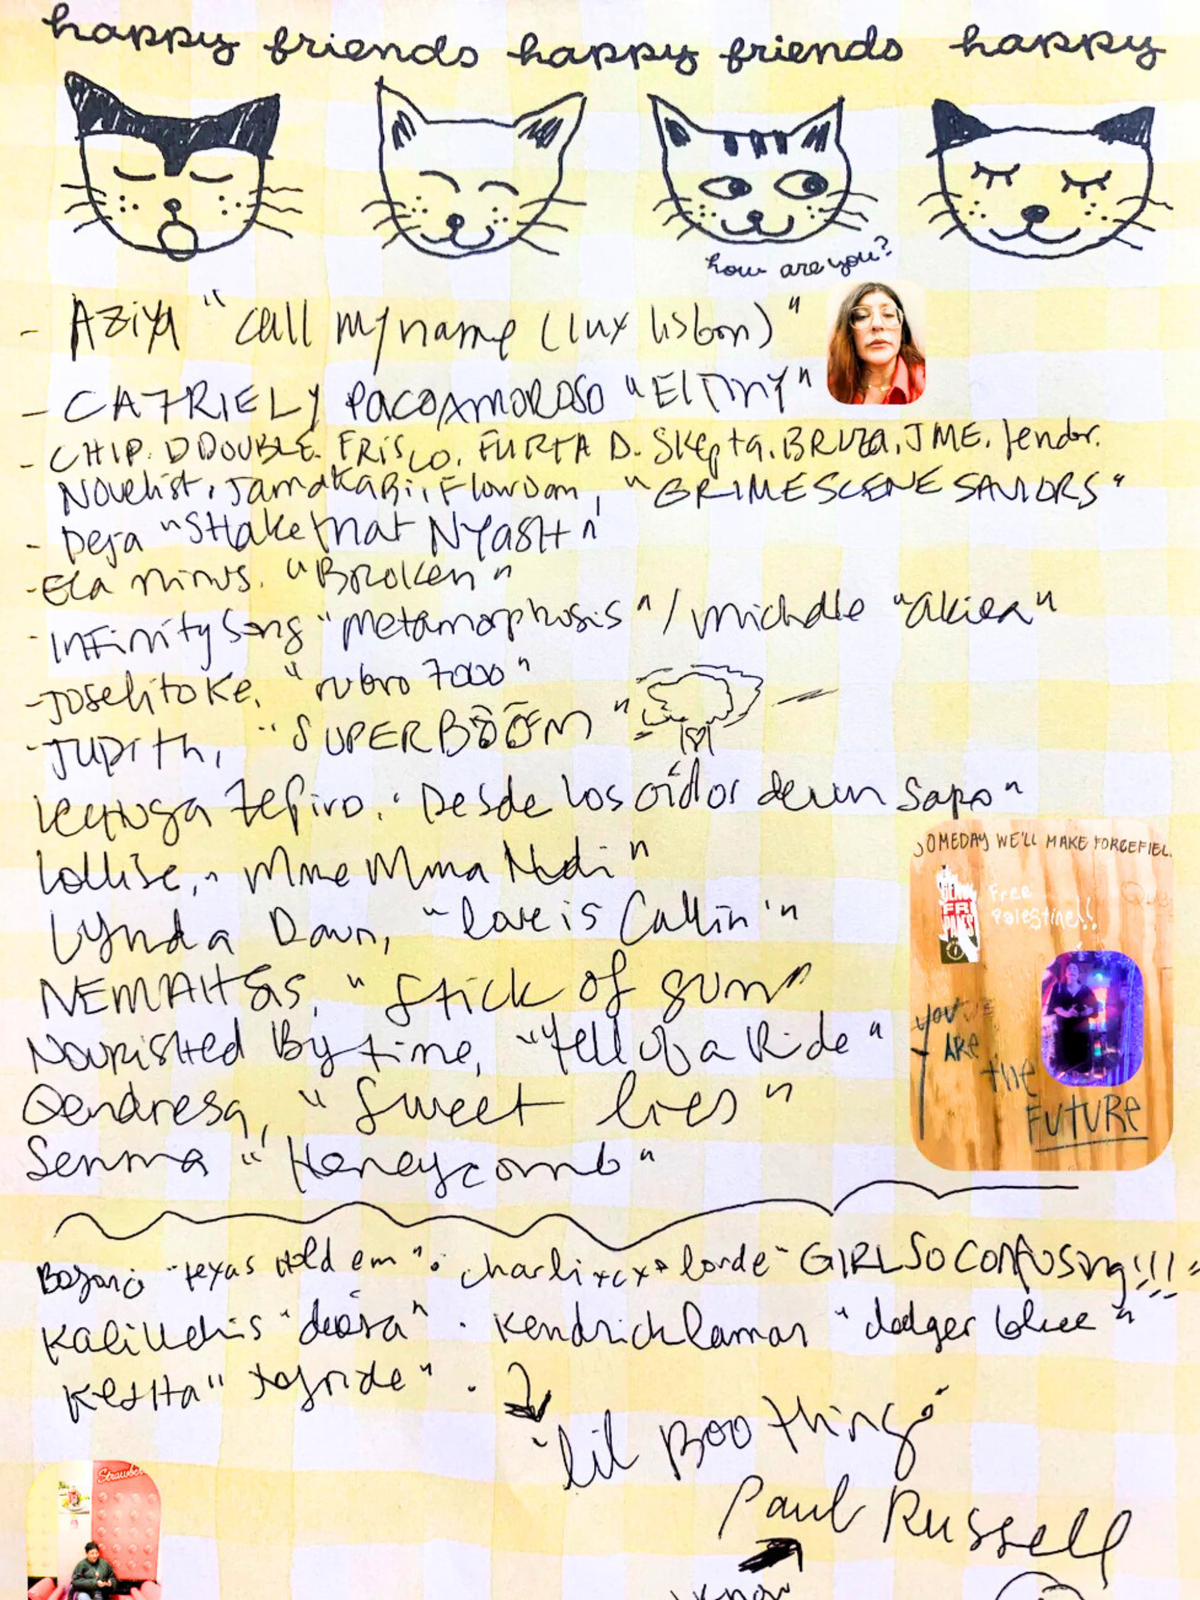 happy friends happy friends happy
how are you?
- AZiYA "call my name (lux lisbon)"
- CA7RIEL y PACO AMOROSO "El Día"
- CHIP. D DOUBLE. FRISCO. FURTA D. Skepta. BRUZA, JME. Jendor.
Novelist, Jamakabi, Flowdan, "GRIME SCENE SAVIORS"
- Deja "SHake that NYASH"
- Ela minus. "BROKEN"
- INFinity Song "Metamorphosis" / Michelle "akira"
- Joselito Ke, "rubro 7000"
- JUDITH, "SUPERBÖÖM"
Lechuga Zefiro. "Desde los oídos de un Sapo"
Lollise, "Mme Mma Ndi"
Lynda Dawn, "love is Callin'"
NEMAHSIS, "Stick of gum"
Nourished By time, "Hell of a Ride"
Qendresa, "Sweet lies"
Senma "Honeycomb"
SOMEDAY WE'LL MAKE FORCEFIEL
Free
Palestine!!
YOU
ARE
the
FUTURE
Beyoncé "texas Hold em". Charli xcx + lorde "GIRL SO CONFUSing!!!"
Kali Uchis "diosa". Kendrick lamar "dodger blue"
KESHA "joyride".
"lil Boo thing"
Paul Russell
I know
Strawber